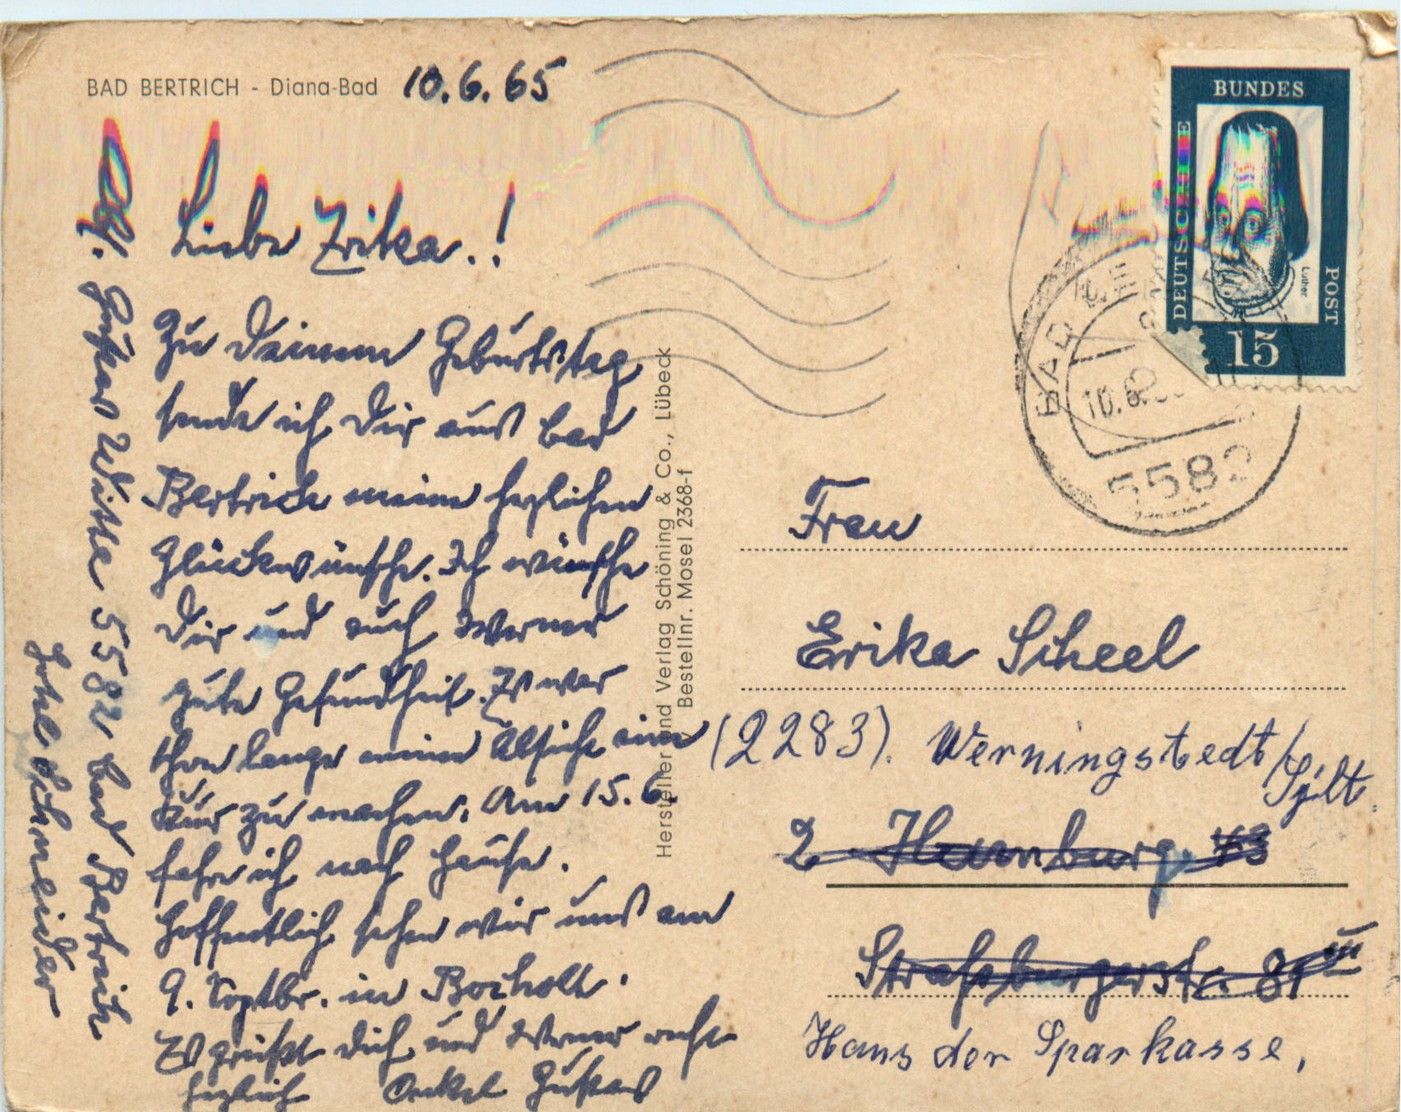 BAD BERTRICH - Diana-Bad
10.6.65
Liebe Erika.!
Zu Deinem Geburtstag
sende ich Dir aus bad
Bertrich meine herzlichen
Glückwünsche. Ich wünsche
Dir und auch Werner
gute Gesundheit. Es war
schon lange meine Absicht eine
Kur zu machen. Am 15.6.
fahre ich nach Hause.
Hoffentlich sehen wir uns am
9. Septbr. in Bocholt.
Es grüßt dich und Werner recht
herzlich Onkel Gustav
Abs. Gustav Witte 5582 bad Bertrich
Hotel Schneider
Hersteller und Verlag Schöning & Co., Lübeck
Bestellnr. Mosel 2368-f
DEUTSCHE
BUNDES
POST
Luther
15
BAD
10.6.
5582
Frau
Erika Scheel
(2283). Werningstedt/
Sylt.
2 Hamburg 43
Straßburgerstr. 81 III
Haus der Sparkasse,